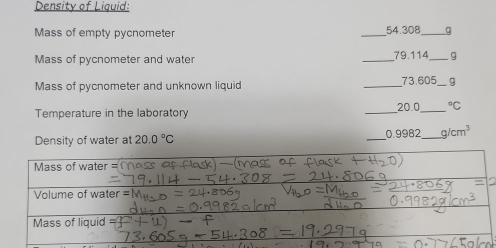 Density of Liquid:
Mass of empty pycnometer 54.308 g
Mass of pycnometer and water 79.114 g
Mass of pycnometer and unknown liquid 73.605 g
Temperature in the laboratory 20.0 °C
Density of water at 20.0 °C 0.9982 g/cm³
Mass of water = (mass of flask) - (mass of flask + H₂O)
= 79.114 - 54.308 = 24.806g
Volume of water = M H₂O = 24.806g V H₂O = M H₂O = 24.806g =
d H₂O = 0.9982g/cm³ d H₂O 0.9982g/cm³
Mass of liquid = - f
73.605g - 54.308 = 19.297g